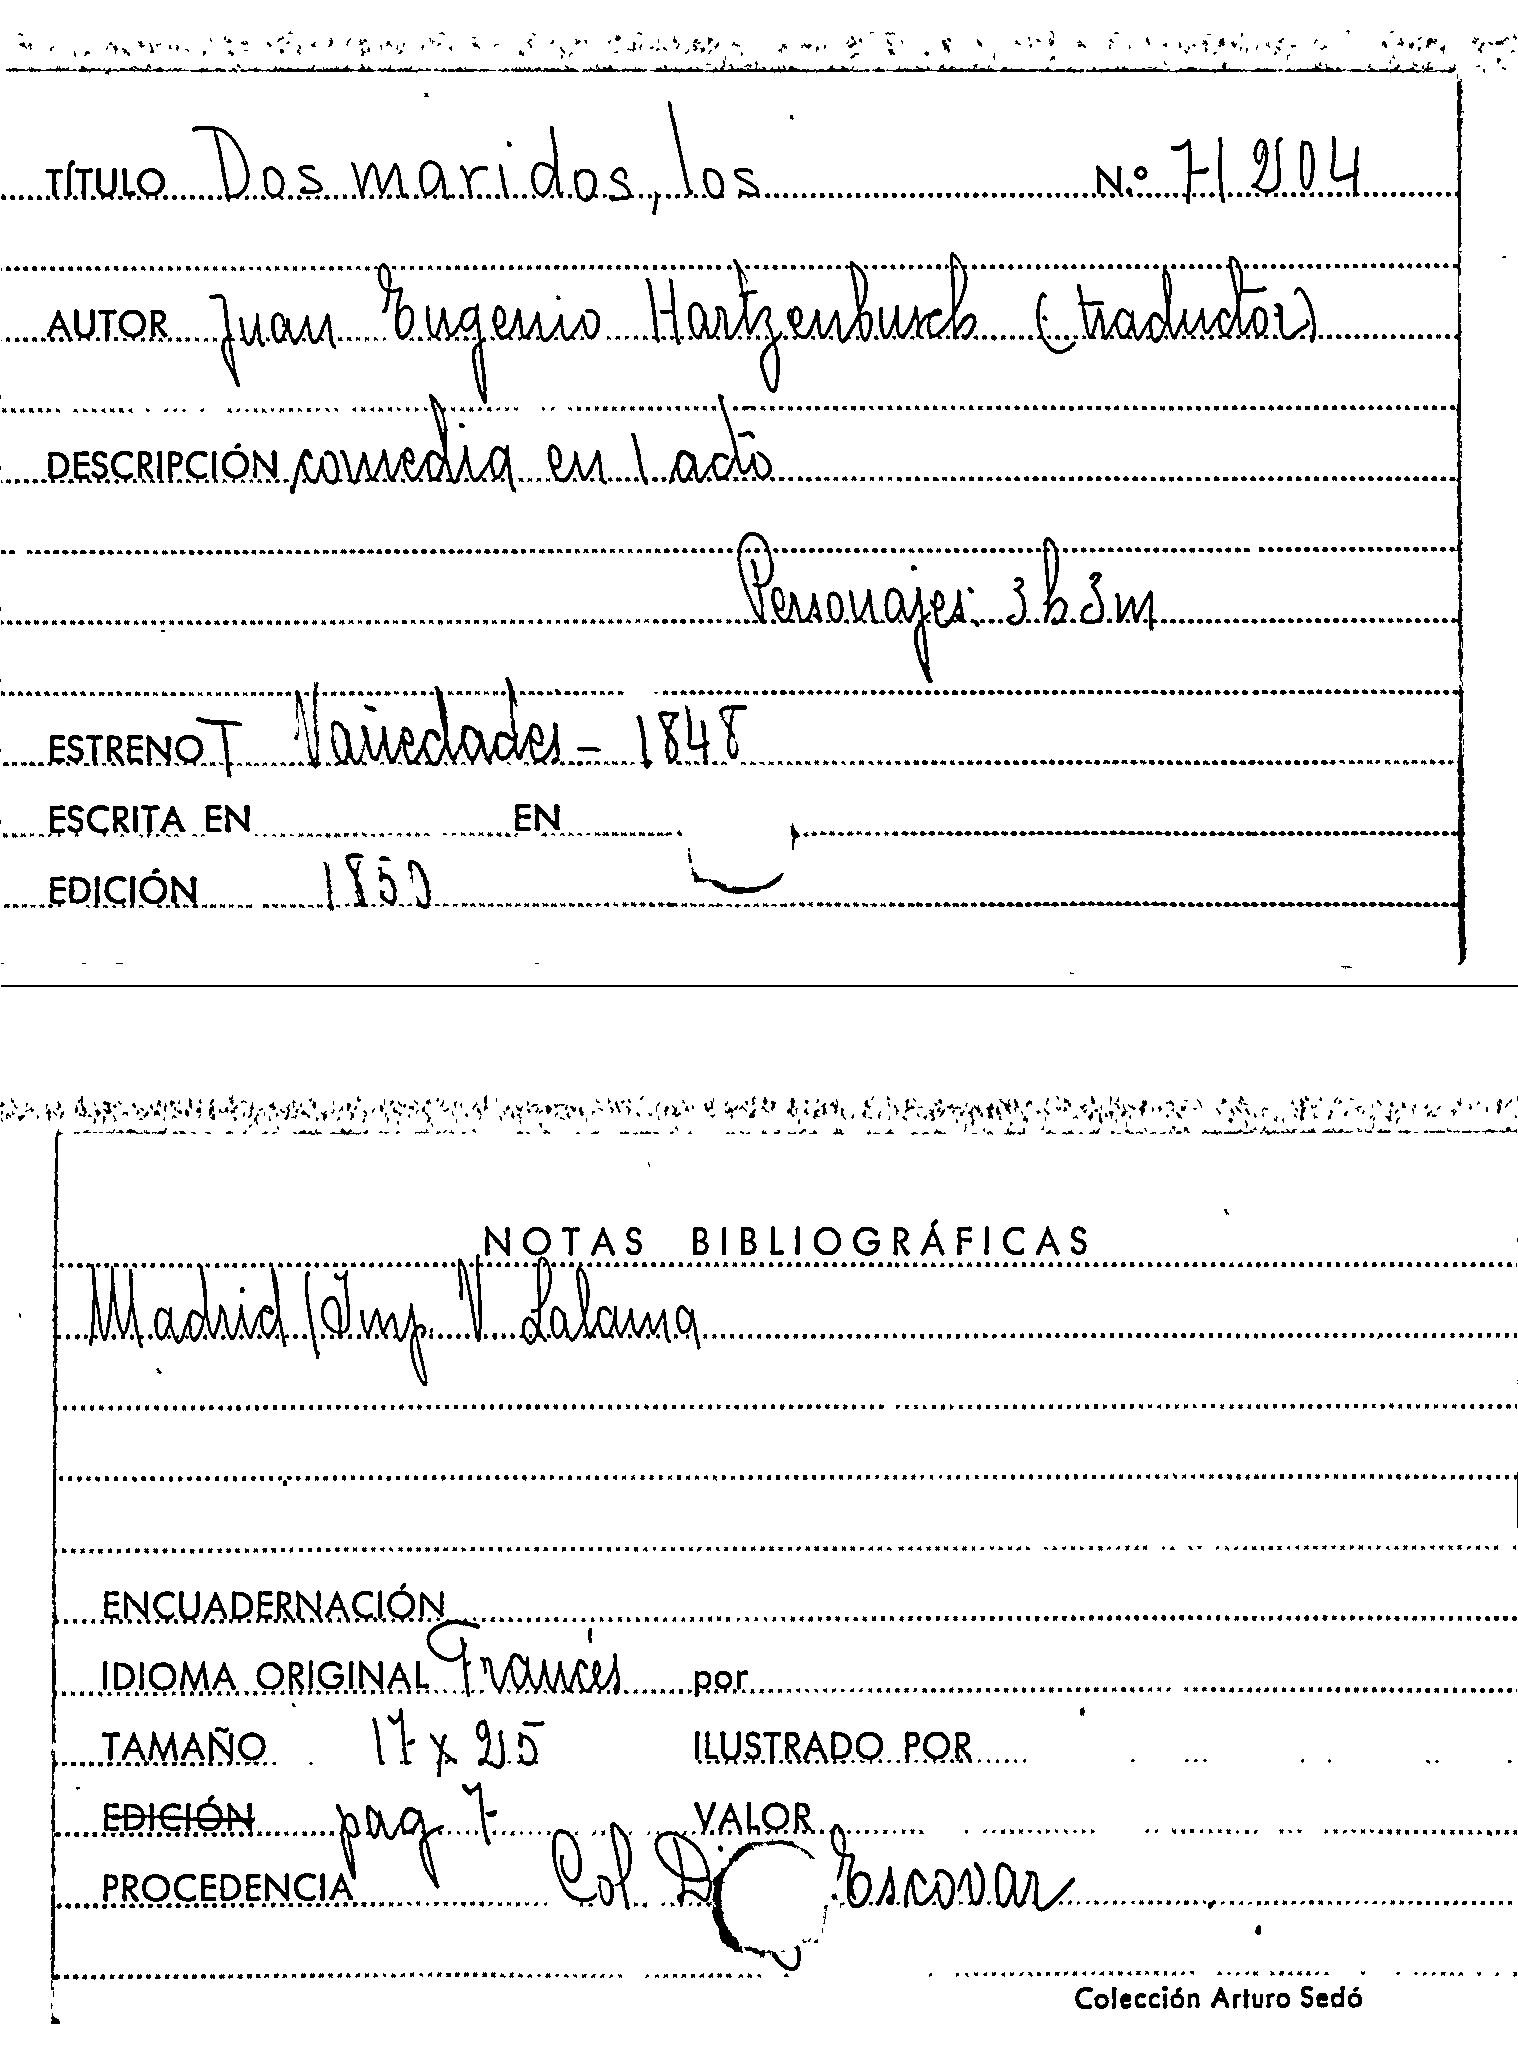 TÍTULO Dos maridos, los N.º 71204
AUTOR Juan Eugenio Hartzenbusch (traductor)
DESCRIPCIÓN comedia en 1 acto
Personajes: 3 h 3 m
ESTRENO T Variedades - 1848
ESCRITA EN EN
EDICIÓN 1850
NOTAS BIBLIOGRÁFICAS
Madrid / Imp. V Lalama
ENCUADERNACIÓN
IDIOMA ORIGINAL Francés por
TAMAÑO 17 x 25 ILUSTRADO POR
EDICIÓN pag 7 VALOR
PROCEDENCIA Col Escovar
Colección Arturo Sedó